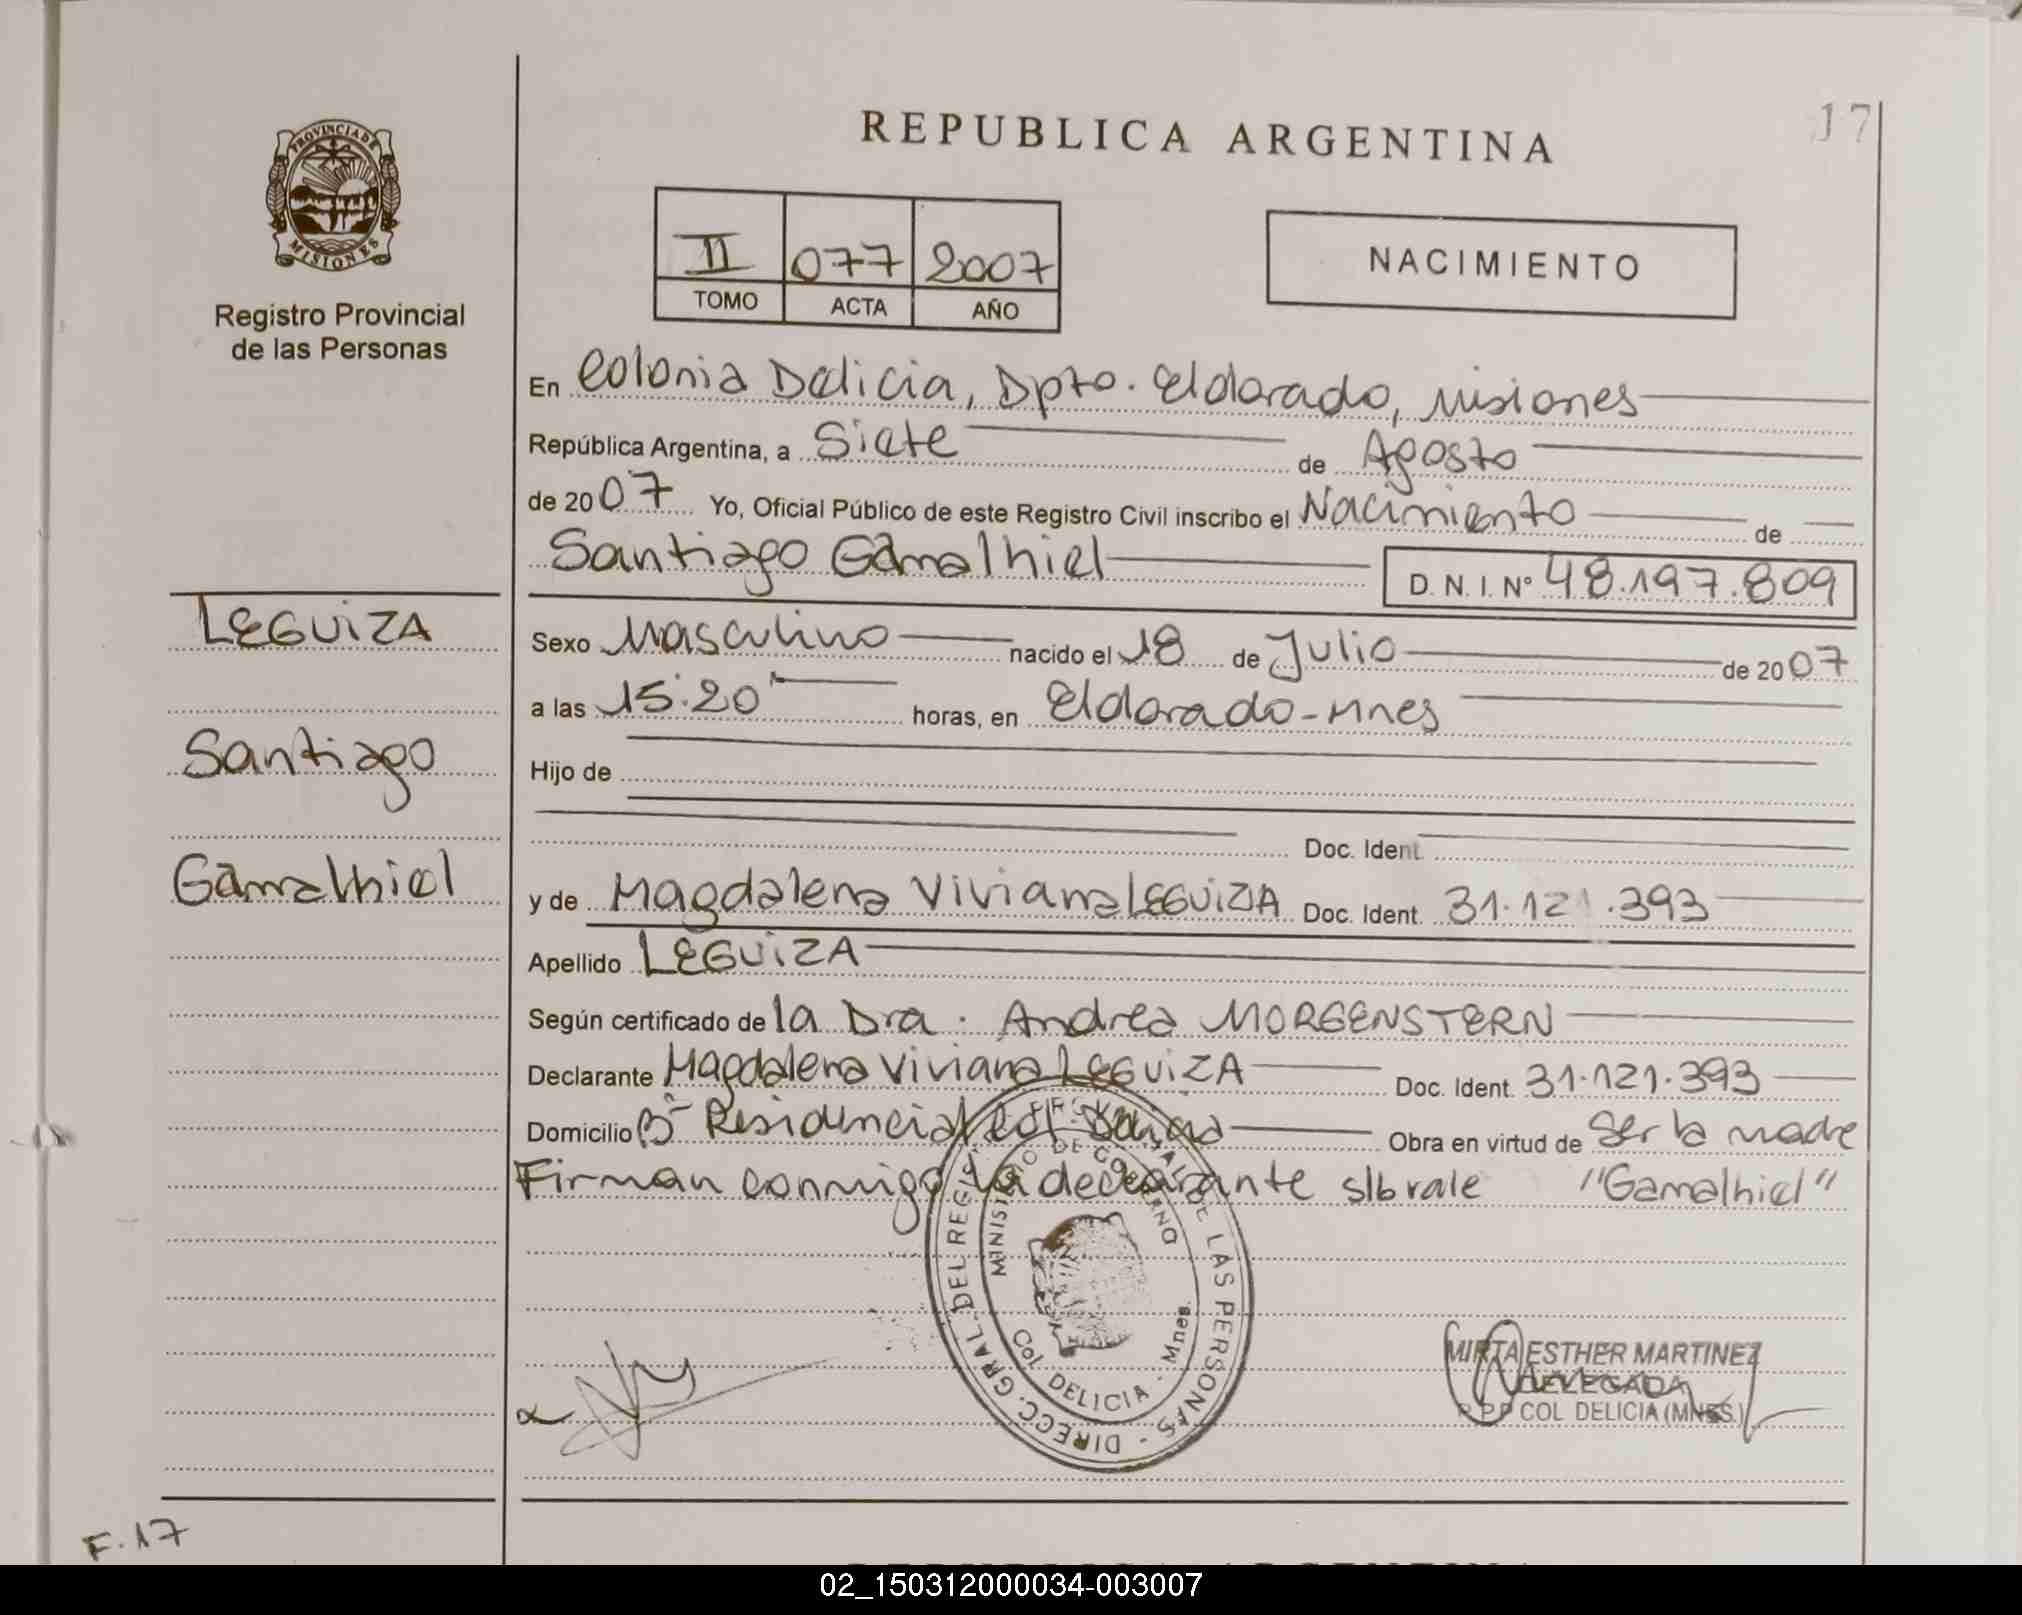 17
REPUBLICA ARGENTINA
PROVINCIA DE
MISIONES
Registro Provincial
de las Personas
II 077 2007
TOMO ACTA AÑO
NACIMIENTO
En Colonia Delicia, Dpto. Eldorado, Misiones
República Argentina, a Siete de Agosto
de 2007 Yo, Oficial Público de este Registro Civil inscribo el Nacimiento de
Santiago Gamalhiel D. N. I. N° 48.197.809
LEGUIZA
Santiago
Gamalhiel
Sexo Masculino nacido el 18 de Julio de 2007
a las 15:20 horas, en Eldorado - Mnes
Hijo de
Doc. Ident.
y de Magdalena Viviana LEGUIZA Doc. Ident. 31.121.393
Apellido LEGUIZA
Según certificado de la Dra. Andrea MORGENSTERN
Declarante Magdalena Viviana LEGUIZA Doc. Ident. 31.121.393
Domicilio B° Residencial Col. Delicia Obra en virtud de Ser la madre
Firman conmigo la declarante s/b vale "Gamalhiel"
DIRECC. GRAL. DEL REGIST. DE LAS PERSONAS
MINISTERIO DE GOBIERNO
Col DELICIA - Mnes.
MIRTA ESTHER MARTINEZ
DELEGADA
R.P.P COL DELICIA (MNES.)
F.17
02_150312000034-003007